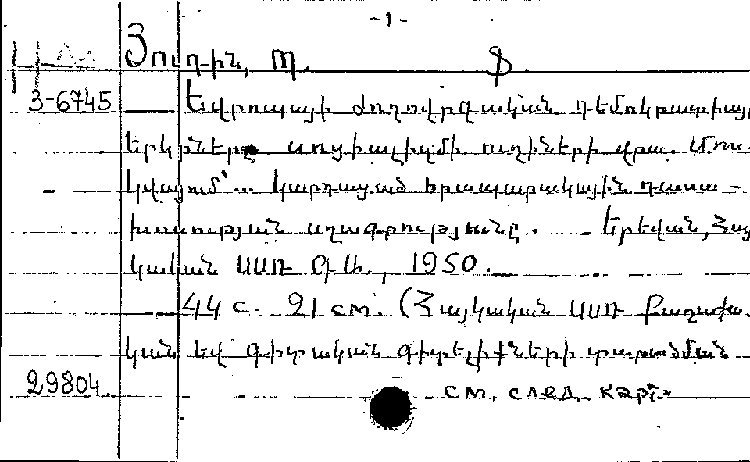 -1-
Յուդին, Պ.
3-6745 Եվրոպայի ժողովրդական դեմոկրատիայի
երկրները սոցիալիզմի ուղիների վրա. Մոս-
կվայում՝... կարդացած հրապարակային դասա-
խոսության սղագրությունը. Երևան, Հայ
կական ՍՍՌ ԳԱ, 1950.
44 с. 21 см. (Հայկական ՍՍՌ Քաղաքա.
կան եվ գիտական գիտելիքների տարածման
29804 см. след. карт.